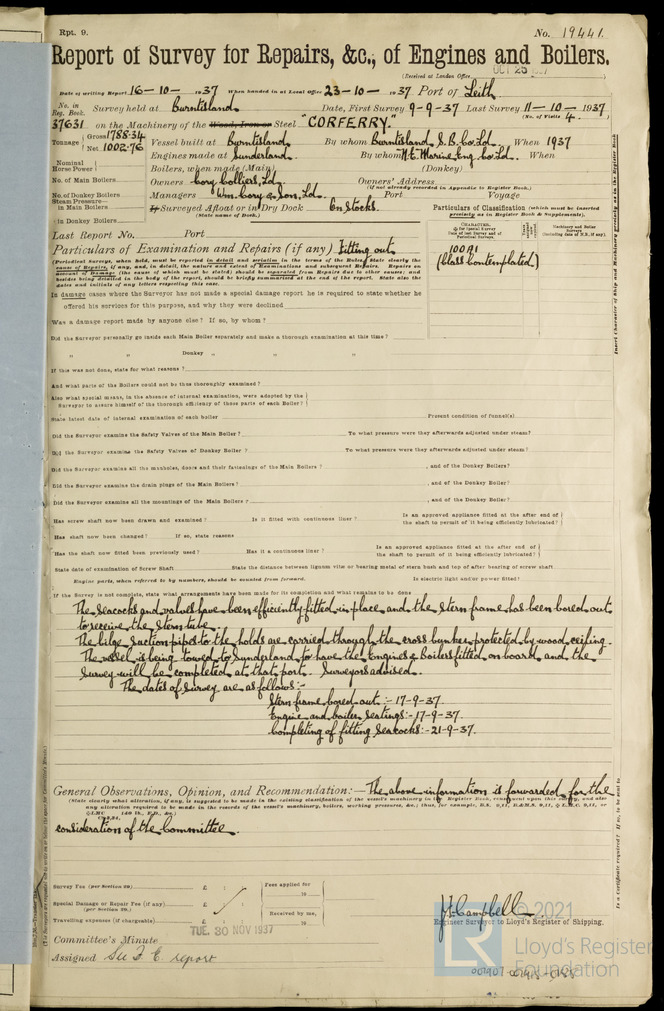 Rpt. 9.
No. 19441.
Report of Survey for Repairs, &c., of Engines and Boilers.
(Received at London Office OCT 25 1937)
Date of writing Report 16-10-1937 When handed in at Local Office 23-10-1937 Port of Leith.
No. in Reg. Book. Survey held at Burntisland. Date, First Survey 9-9-37 Last Survey 11-10-1937
(No. of Visits 4.)
37631 on the Machinery of the Wood, Iron or Steel "CORFERRY."
Tonnage Gross 1788.34 Net 1002.76
Vessel built at Burntisland. By whom Burntisland S.B. Co. Ld. When 1937
Engines made at Sunderland. By whom N.E. Marine Eng. Co. Ld. When
Nominal Horse Power
Boilers, when made (Main) (Donkey)
No. of Main Boilers
Owners Cory Colliers, Ld. Owners' Address
(if not already recorded in Appendix to Register Book.)
No. of Donkey Boilers
Managers Wm. Cory & Son, Ld. Port Voyage
Steam Pressure— in Main Boilers
If Surveyed Afloat or in Dry Dock On Stocks.
(State name of Dock.)
in Donkey Boilers
Particulars of Classification (which must be inserted precisely as in Register Book & Supplements).
Last Report No. Port
100A1
(Class Contemplated)
Particulars of Examination and Repairs (if any) Fitting out.
(Periodical Surveys, when held, must be reported in detail and seriatim in the terms of the Rules, state clearly the cause of Repairs, if any, and, in detail, the nature and extent of Examinations and subsequent Repairs. Repairs on account of Damage (the cause of which must be stated) should be separated from Repairs due to other causes; and besides being detailed in the body of the report, should be briefly summarised at the end of the report. State also the dates and initials of any letters respecting this case.
In damage cases where the Surveyor has not made a special damage report he is required to state whether he
offered his services for this purpose, and why they were declined
Was a damage report made by anyone else? If so, by whom?
Did the Surveyor personally go inside each Main Boiler separately and make a thorough examination at this time?
" " Donkey " " "
If this was not done, state for what reasons?
And what parts of the Boilers could not be thus thoroughly examined?
Also what special means, in the absence of internal examination, were adopted by the
Surveyor to assure himself of the thorough efficiency of those parts of each Boiler?
State latest date of internal examination of each boiler Present condition of funnel(s)
Did the Surveyor examine the Safety Valves of the Main Boiler? To what pressure were they afterwards adjusted under steam?
Did the Surveyor examine the Safety Valves of Donkey Boiler? To what pressure were they afterwards adjusted under steam?
Did the Surveyor examine all the manholes, doors and their fastenings of the Main Boilers? , and of the Donkey Boilers?
Did the Surveyor examine the drain plugs of the Main Boilers? , and of the Donkey Boiler?
Did the Surveyor examine all the mountings of the Main Boilers? , and of the Donkey Boiler?
Has screw shaft now been drawn and examined? Is it fitted with continuous liner? Is an approved appliance fitted at the after end of the shaft to permit of it being efficiently lubricated?
Has shaft now been changed? If so, state reasons
Has the shaft now fitted been previously used? Has it a continuous liner? Is an approved appliance fitted at the after end of the shaft to permit of it being efficiently lubricated?
State date of examination of Screw Shaft State the distance between lignum vitæ or bearing metal of stern bush and top of after bearing of screw shaft
Engine parts, when referred to by numbers, should be counted from forward. Is electric light and/or power fitted?
If the Survey is not complete, state what arrangements have been made for its completion and what remains to be done
The Seacocks and valves have been efficiently fitted in place and the Stern frame has been bored out
to receive the Stern tube.
The bilge Suction pipes to the holds are carried through the cross bunker protected by wood ceiling.
The vessel is being towed to Sunderland to have the Engines & Boilers fitted on board and the
Survey will be completed at that port. Surveyors advised.
The dates of Survey are as follows:-
Stern frame bored out :- 17-9-37.
Engine and boiler Seatings:- 17-9-37.
Completing of fitting Seacocks:- 21-9-37.
General Observations, Opinion, and Recommendation:— The above information is forwarded for the
consideration of the Committee.
Survey Fee (per Section 29) £ : :
Special Damage or Repair Fee (if any) £ : :
(per Section 29.)
Travelling expenses (if chargeable) £ : :
Fees applied for
19
Received by me,
19
Campbell.
Engineer Surveyor to Lloyd's Register of Shipping.
Committee's Minute TUE. 30 NOV 1937
Assigned See F.E. report
© 2021
LR
Lloyd's Register
Foundation